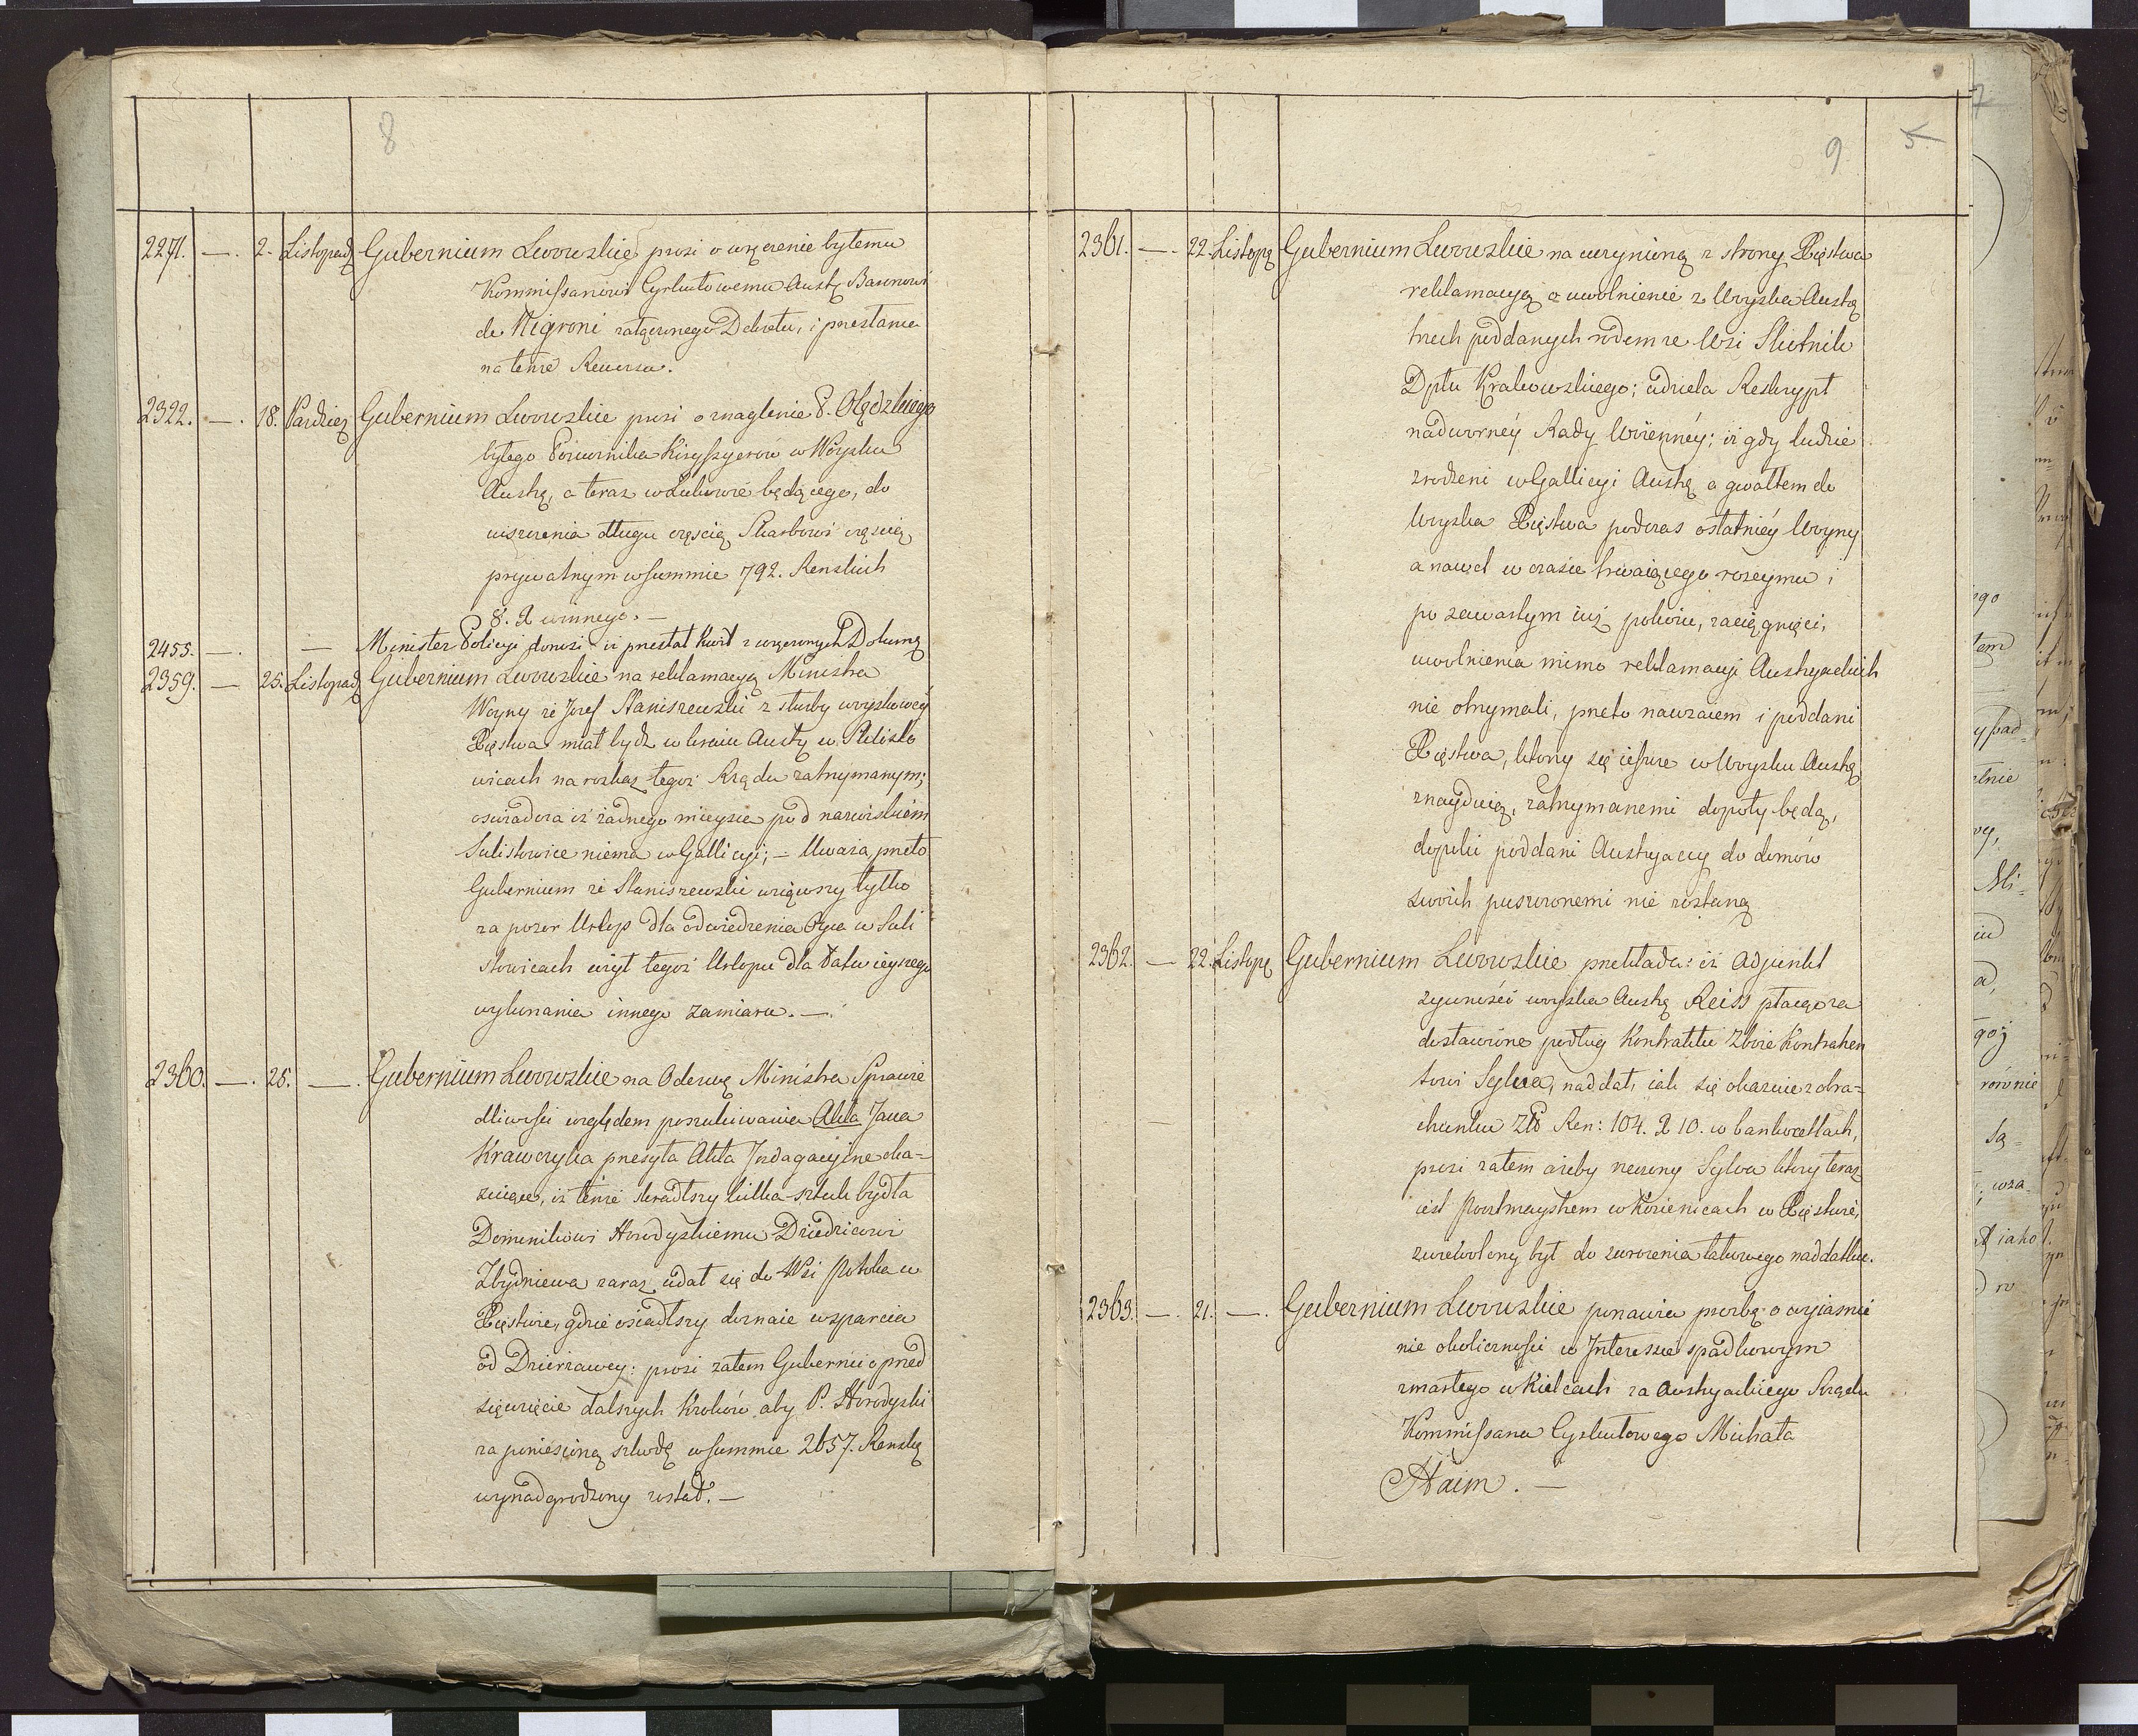 8
2271. — . 2. Listopad Gubernium Lwowskie prosi o wręczenie byłemu
Kommissarzowi Cyrkułowemu Austr Baronowi
de Nigroni załączonego Dekretu, i przesłania
na tenże Rewersu.
2322. — . 18. Paździer Gubernium Lwowskie prosi o znaglenie P. Olędzkiego
byłego Porucznika Kiryssyerów w Woysku
Austrę, a teraz w Łukowie będącego, do
uiszczenia długu częścią Skarbowi częścią
prywatnym w summie 792. Renskich
8. X winnego. —
2455. — . — Minister Policyi donosi iż przesłał kwit z wręczonych Dokumę
2359. — 25. Listopad Gubernium Lwowskie na reklamacyą Ministra
Woyny że Józef Staniszewski z służby woyskowey
Xięstwa miał bydź w kraiu Austr w Sulisło
wicach na rozkaz tegoż Rządu zatrzymanym;
oświadcza iż żadnego mieysca pod nazwiskiem
Sulistowice niema w Gallicyi; — Uważa przeto
Gubernium że Staniszewski wziąwszy tylko
za pozor Urlop dla odwiedzenia Oyca w Suli
stowicach użył tegoż Urlopu dla łatwieyszego
wykonania innego zamiaru. —
2360. — . 25. — . Gubernium Lwowskie na Odezwę Ministra Sprawie
dliwości względem poszukiwania Akta Jana
Krawczyka przesyła Akta Indagacyine oka=
zuiące, iż tenże skradłszy kilka sztuk bydła
Dominikowi Horodyskiemu Dziedzicowi
Zbydniewa zaraz udał się do Wsi Potoka w
Xięstwie, gdzie osiadłszy doznaie wsparcia
od Dzierżawcy: prosi zatem Gubernii o przed
sięwzięcie dalszych kroków aby P. Horodyski
za poniesioną szkodę w summie 2657. Renskę
wynadgrodzony został. —
9
5
2361. — . 22. Listopę Gubernium Lwowskie na uczynioną z strony Xięstwa
reklamacyą o uwolnienie z Woyska Austrę
trzech poddanych rodem ze Wsi Słotnik
Dptu Krakowskiego; udziela Reskrypt
nadworney Rady Woienney; iż gdy ludzie
zrodzeni w Gallicyi Austrę a gwałtem do
Woyska Xięstwa podczas ostatniey Woyny
a nawet w czasie trwaiącego rozeymu i
po zawartym iuż pokoiu, zaciągnięci,
uwolnienia mimo reklamacyi Austryackich
nie otrzymali, przeto nawzaiem i poddani
Xięstwa, którzy się ieszcze w Woysku Austrę
znayduią, zatrzymanemi dopoty będą,
dopóki poddani Austryaccy do domów
swoich puszczonemi nie zostaną
2362. — 22. Listopę Gubernium Lwowskie przekłada: iż Adjunkt
żywności woyska Austrę Reiss płacąc za
dostawione podług Kontraktu Zboże Kontrahen
towi Sylwa, naddał, iak się okazuie z obra=
chunku Złt Ren: 104. X 10. w bankocetlach,
prosi zatem ażeby rzeczony Sylva który teraz
iest Poczтmaystrem w Kozienicach w Xięstwie,
zniewolony był do zwrócenia takowego naddatku.
2363. — . 21. — . Gubernium Lwowskie ponawia prośbę o wyiaśnie
nie okoliczności w Interessie spadkowym
zmarłego w Kielcach za Austryackiego Rządu
Kommissarza Cyrkułowego Michała
Haim. —